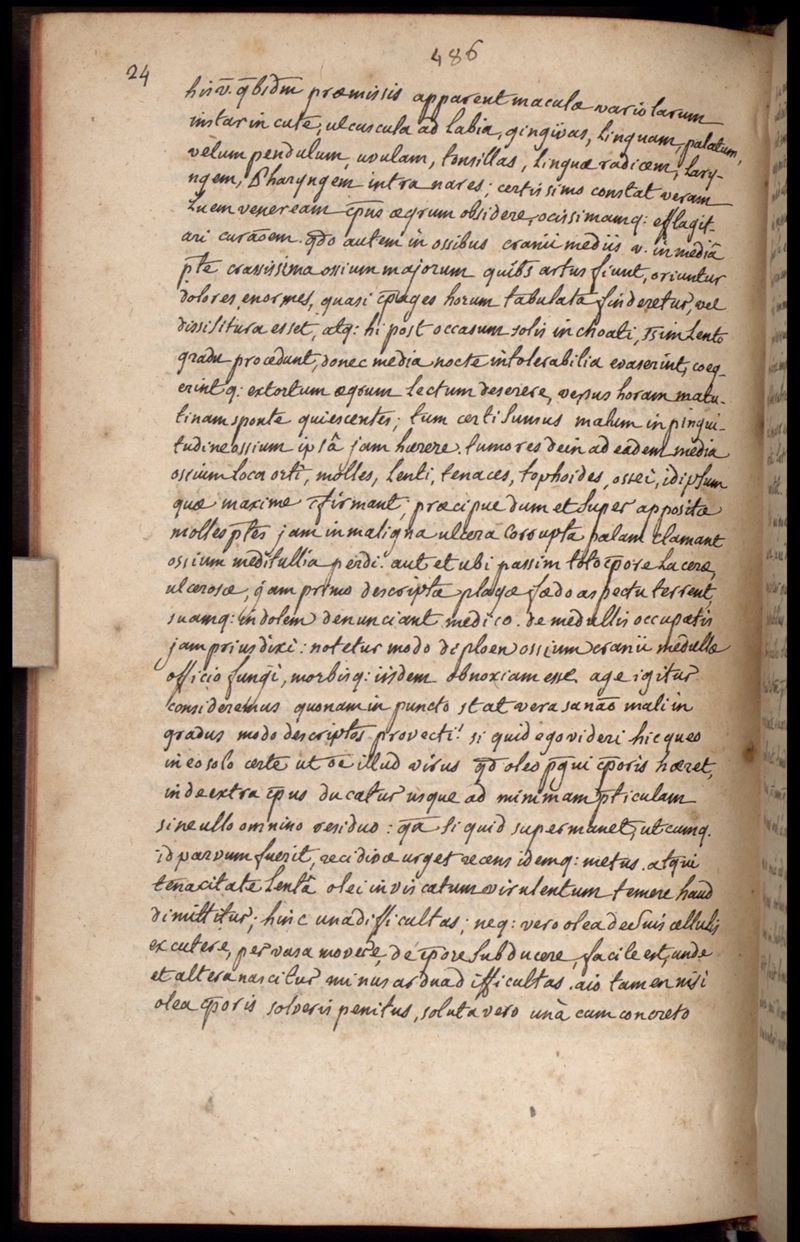 486
24
his v. q̄bsdm̄ præmissis apparent maculæ variolarum
instar in cute, ulcuscula ad labia, gingivas, linguam, palatum,
velum pendulum, uvulam, tonsillas, linguæ radicem, lary-
ngem, Pharyngem intra nares; certissimo constat veram
Luem veneream c̄pus ægrum obsidere, ocissimamq: efflagit-
ari curaōem. q̄do autem in ossibus cranii mediis v. in mediâ
p̄te crassissima ossium majorum quib̄s artus fiunt, oriuntur
dolores enormes, quasi c̄pages horum tabulata finderetur, vel
dissilitura esset, atq: hi post occasum solis inchoati, lento
gradu procedunt, donec media nocte intolerabilia evaserint, coeg-
erintq: extortum ægrum lectum deserere, versus horam matu-
tinam sponte quiescentes; tum certi sumus malum in pingui-
tudine ossium ipsâ jam hærere. tumores dein ad eadem media
ossium loca orti, molles, lenti, tenaces, tophoides, ossei, idipsum
quæ maxime c̄firmant; præcipue dum et super appositæ
molles p̄tes jam in maligna ulcera corrupta palam clamant
ossium meditullia perdi. aut et ubi passim toto c̄pore laceræ,
ulcerosæ, q̄am primo descriptæ plagæ fædo aspectu terrent,
suamq: indolem denunciant medico. de medullis occupatis
jam prius dixi: notetur modo diploen ossium cranii medullæ
officio fungi, morbisq: iisdem obnoxiam esse. age igitur
consideremus quonam in puncto stat vera sanaō mali in
gradus modo descriptos provecti. si quid ego videri hic queo
in eo solo certe ut oē illud virus q̄d oleo p̄gui c̄poris hæret,
inde extra c̄pus ducatur usque ad minimam p̄ticulam
sine ullo omnino residuo: q̄a si quid supermanet, utcumq.
id parvum fuerit, recidivæ urget recens idemq: metus. atqui
tenacitate lentâ olei inviscatum virulentum temere haud
dimittitur; hinc una difficultas; neq: vero olea de suis cellulis
excutere, per vasa movere, de c̄pore subducere, facile est, unde
et altera nascitur minus ardua difficultas. aio tamen nisi
olea c̄poris solveris penitus, soluta vero unà cum concreto